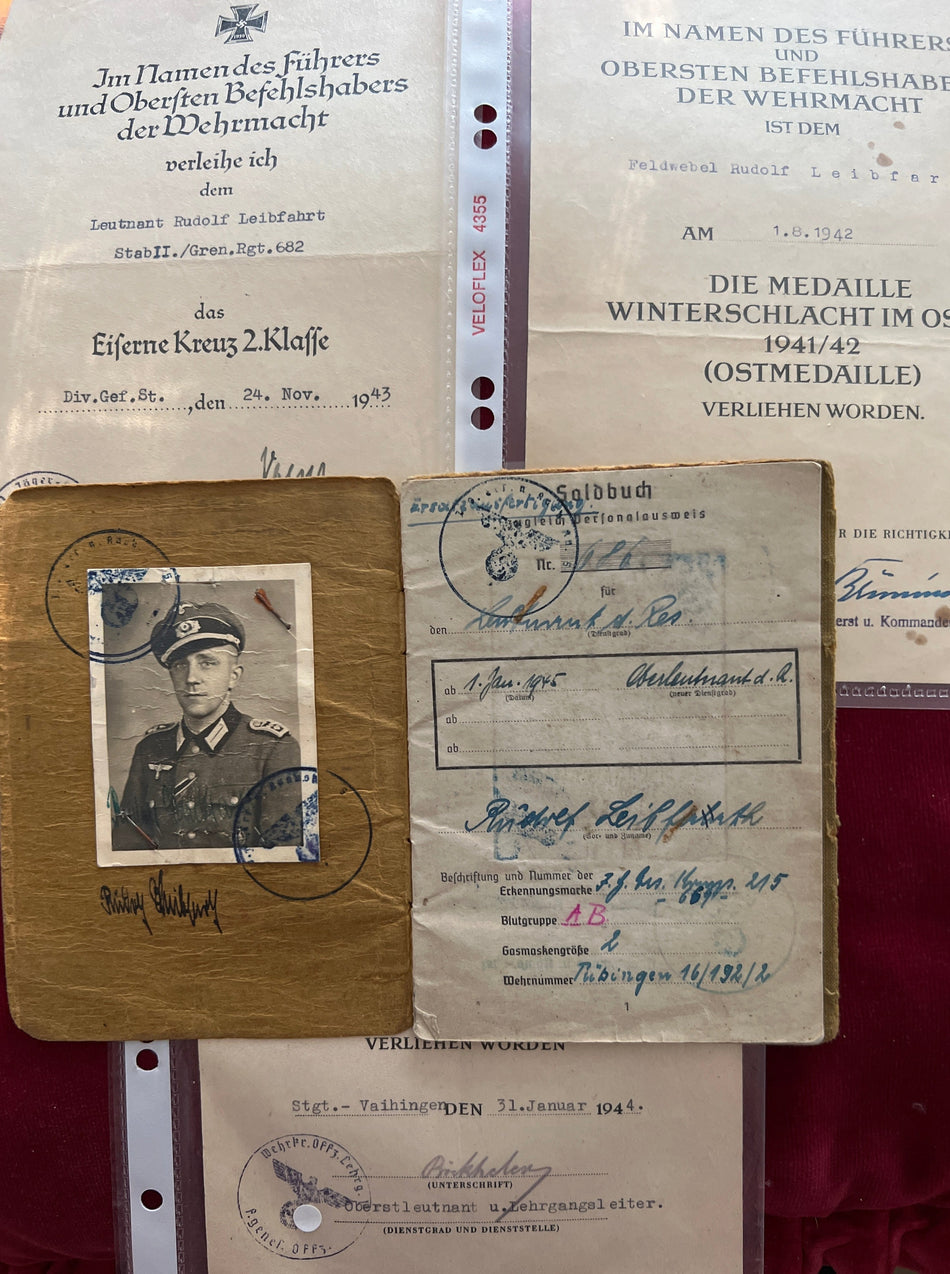 Im Namen des Führers
und Obersten Befehlshabers
der Wehrmacht
verleihe ich
dem
Leutnant Rudolf Leibfahrt
StabII./Gren.Rgt.682
das
Eiserne Kreuz 2.Klasse
Div.Gef.St. ,den 24. Nov. 1943
Jäger-
VELOFLEX 4355
IM NAMEN DES FÜHRERS
UND
OBERSTEN BEFEHLSHABE
DER WEHRMACHT
IST DEM
Feldwebel Rudolf Leibfar
AM 1.8.1942
DIE MEDAILLE
WINTERSCHLACHT IM OS
1941/42
(OSTMEDAILLE)
VERLIEHEN WORDEN.
R DIE RICHTIGKE
erst u. Kommande
Soldbuch
Ersatzausfertigung.
zugleich Personalausweis
Nr. 686
für
den Leutnant d. Res.
(Dienstgrad)
ab 1. Jan. 1945 Oberleutnant d. R.
(Datum) (neuer Dienstgrad)
ab
ab
Rudolf Leibfarth
(Vor- und Zuname)
Beschriftung und Nummer der
Erkennungsmarke 215
- 669 -
Blutgruppe AB
Gasmaskengröße 2
Wehrnummer Tübingen 16/192/2
1
Rudolf
VERLIEHEN WORDEN
Stgt.- Vaihingen DEN 31.Januar 1944.
(UNTERSCHRIFT)
Oberstleutnant u.Lehrgangsleiter.
(DIENSTGRAD UND DIENSTSTELLE)
Wehrkr. Offz. Lehrg.
f. genes. Offz.